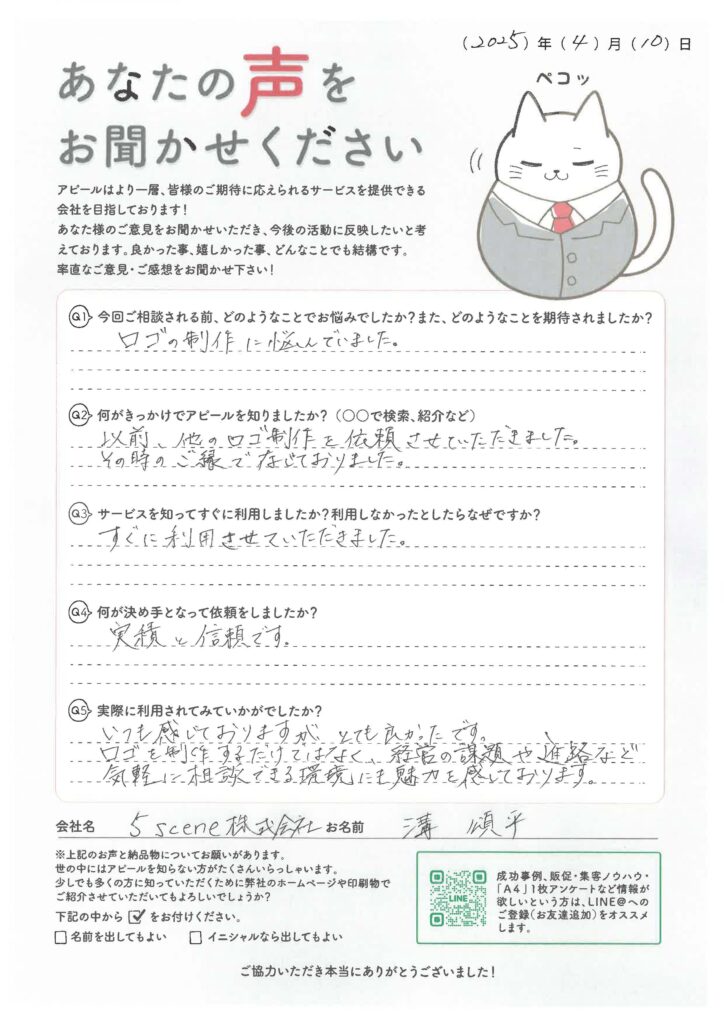 (2025)年(4)月(10)日
あなたの声を
お聞かせください
ペコッ
アピールはより一層、皆様のご期待に応えられるサービスを提供できる
会社を目指しております！
あなた様のご意見をお聞かせいただき、今後の活動に反映したいと考
えております。良かった事、嬉しかった事、どんなことでも結構です。
率直なご意見・ご感想をお聞かせ下さい！
Q1 今回ご相談される前、どのようなことでお悩みでしたか？また、どのようなことを期待されましたか？
ロゴの制作に悩んでいました。
Q2 何がきっかけでアピールを知りましたか？（〇〇で検索、紹介など）
以前、他のロゴ制作を依頼させていただきました。
その時のご縁で存じておりました。
Q3 サービスを知ってすぐに利用しましたか？利用しなかったとしたらなぜですか？
すぐに利用させていただきました。
Q4 何が決め手となって依頼をしましたか？
実積と信頼です。
Q5 実際に利用されてみていかがでしたか？
いつも感じておりますが とても良かったです。
ロゴを制作するだけではなく、経営の課題や進路など
気軽に相談できる環境にも魅力を感じております。
会社名 5 scene 株式会社 お名前 溝 頌平
※上記のお声と納品物についてお願いがあります。
世の中にはアピールを知らない方がたくさんいらっしゃいます。
少しでも多くの方に知っていただくために弊社のホームページや印刷物で
ご紹介させていただいてもよろしいでしょうか？
下記の中から☑をお付けください。
□名前を出してもよい □イニシャルなら出してもよい
LINE
成功事例、販促・集客ノウハウ・
「A4」1枚アンケートなど情報が
欲しいという方は、LINE@への
ご登録（お友達追加）をオススメ
します。
ご協力いただき本当にありがとうございました！